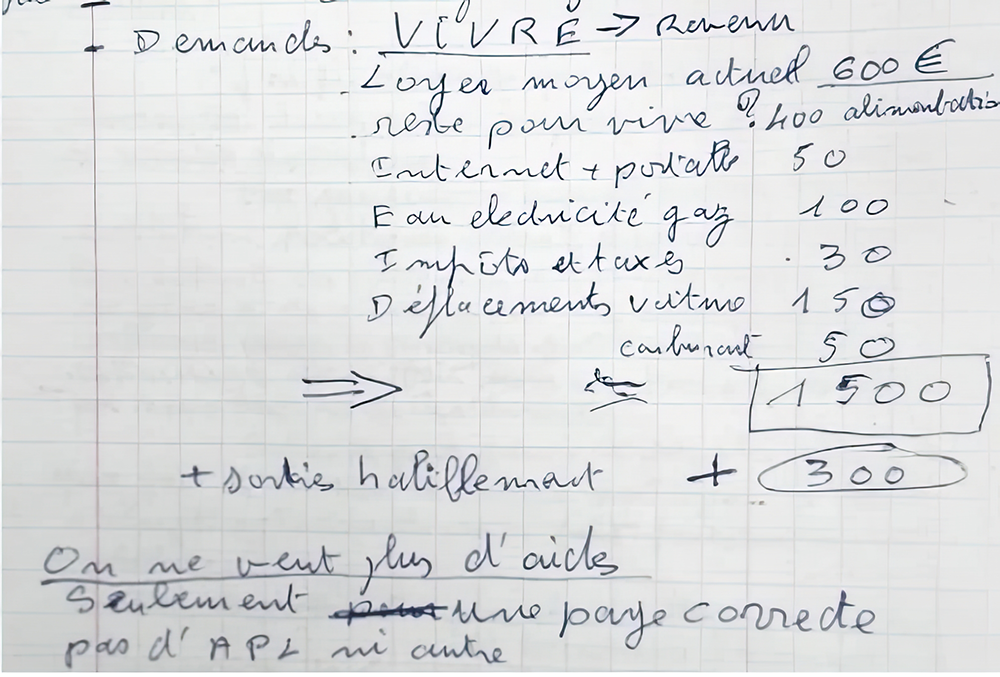 - Demandes : VIVRE → Revenu
. Loyer moyen actuel 600 €
. reste pour vivre ? 400 alimentation
Internet + portable 50
Eau electricité gaz 100
Impôts et taxes . 30
Déplacements 150
carburant 50
⇒ 1500
+ sorties habillement + 300
On ne veut plus d'aides
Seulement une paye correcte
pas d'APL ni autre